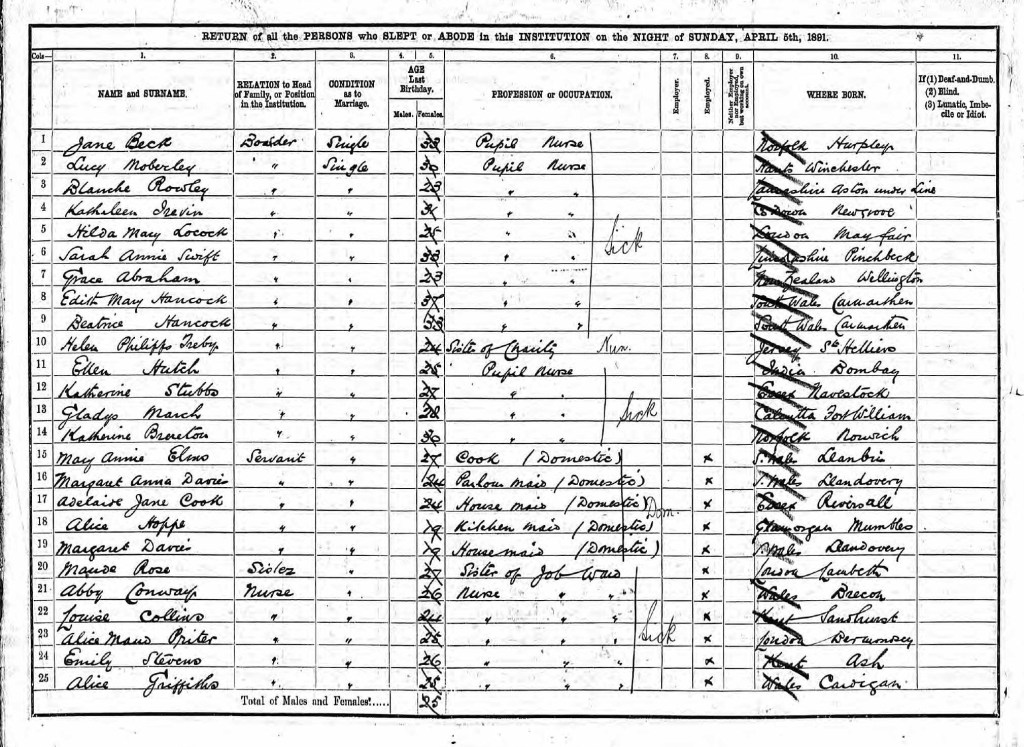 RETURN of all the PERSONS who SLEPT or ABODE in this INSTITUTION on the NIGHT of SUNDAY, APRIL 5th, 1891.
Cols— 1. 2. 3. 4. 5. 6. 7. 8. 9. 10. 11.
NAME and SURNAME. RELATION to Head of Family, or Position in the Institution. CONDITION as to Marriage. AGE Last Birthday. Males. Females. PROFESSION or OCCUPATION. Employer. Employed. Neither Employer nor Employed, but working on own account. WHERE BORN. If (1) Deaf-and-Dumb. (2) Blind. (3) Lunatic, Imbecile or Idiot.
1 Jane Beck Boarder Single 33 Pupil Nurse Norfolk
2 Lucy Moberley " Single 30 Pupil Nurse Hants Winchester
3 Blanche Rowley " " 23 " " Lancashire Aston under Line
4 Kathaleen Trevin " " " " Co Down Newgrove
5 Hilda Mary Locock " " 25 " " London May fair
Sick
6 Sarah Annie Swift " " 33 " " Lincolnshire Pinchbeck
7 Grace Abraham " " 23 " " New Zealand Wellington
8 Edith Mary Hancock " " 37 " " South Wales Carmarthen
9 Beatrice Hancock " " 33 " " South Wales Carmarthen
10 Helen Philipps Treby " " 24 Sister of Charity Nun. Jersey St Helliers
11 Ellen Hutch " " 25 Pupil Nurse India Bombay
12 Katherine Stubbs " " 27 " " Essex Navestock
13 Gladys March " " 28 " " Sick Calcutta Fort William
14 Katherine Brereton " " 30 " " Norfolk Norwich
15 Mary Annie Elms Servant " 27 Cook (Domestic) x S. Wales
16 Margaret Anna Davies " " 24 Parlour maid (Domestic) x S. Wales Llandovery
17 Adelaide Jane Cook " " 24 House maid (Domestic) Dom. x Essex Rivenall
18 Alice Hoppe " " 19 Kitchen maid (Domestic) x Glamorgan Mumbles
19 Margaret Davies " " 19 House maid (Domestic) x S. Wales Llandovery
20 Maude Rose Sister " 27 Sister of Job Ward x London Lambeth
21 Abby Conway Nurse " 26 Nurse " " x Wales Brecon
22 Louise Collins " " 24 " " " x Kent Sandhurst
23 Alice Maud Priter " " 25 " " " Sick x London Bermondsey
24 Emily Stevens " " 26 " " " x Kent Ash
25 Alice Griffiths " " 25 " " " x Wales Cardigan
Total of Males and Females...... 25